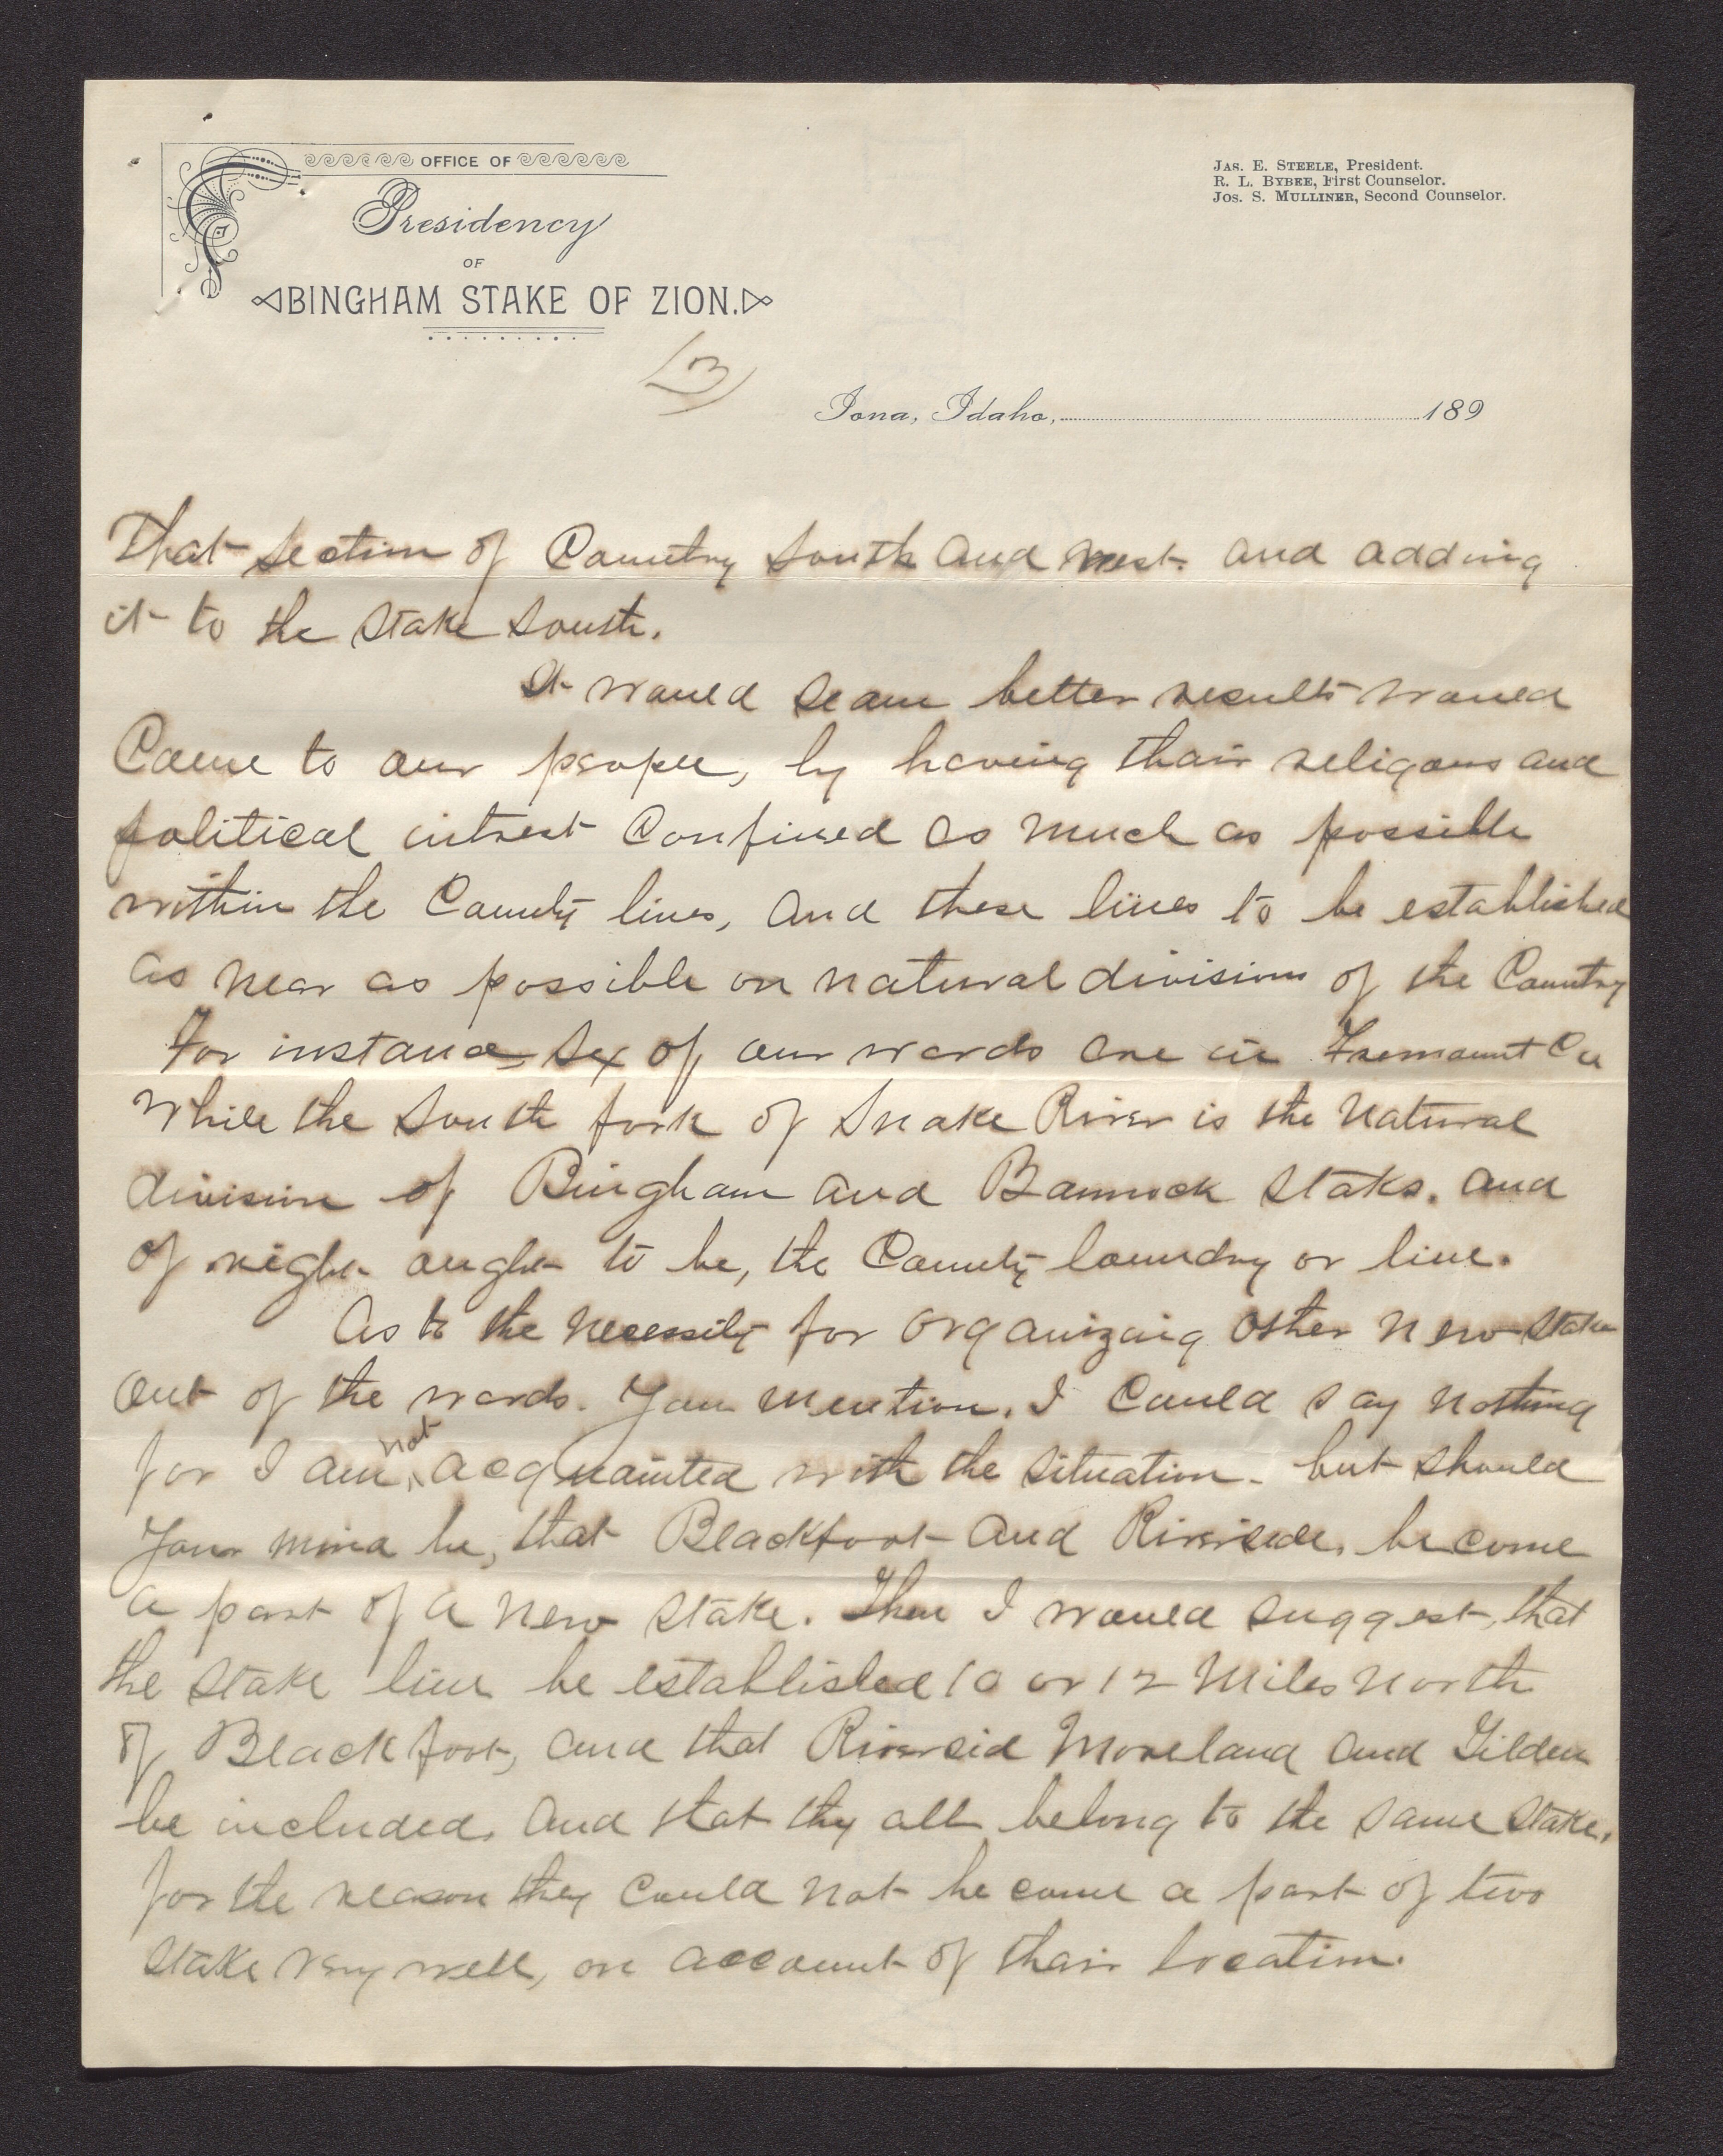 OFFICE OF
Presidency
OF
BINGHAM STAKE OF ZION.
JAS. E. STEELE, President.
R. L. BYBEE, First Counselor.
JOS. S. MULLINER, Second Counselor.
(3)
Iona, Idaho, 189
That section of Country South and West. and adding
it to the Stake South.
It would seam better results would
Come to our people, by having thair religous and
political intrest Confined as much as possible
within the County lines, and these lines to be established
as near as possible on natural divisions of the Country
For instance, Six of our wards are in Fremount Co
While the South fork of Snake River is the Natural
division of Bingham and Bannock Staks. and
of right ought to be, the County boundry or line.
As to the Necessity for organizing other New Stakes
out of the wards. You mention. I Could say nothing
for I am not acquainted with the situation. but should
Your mind be, that Blackfoot and Riverside. become
a part of a New Stake. Then I would suggest, that
the Stake line be established 10 or 12 Miles North
of Blackfoot, and that Riversid Moreland and Tilden
be included. and that thy all belong to the same Stake.
for the reason they Could not become a part of two
Stake very well, on account of thair location.